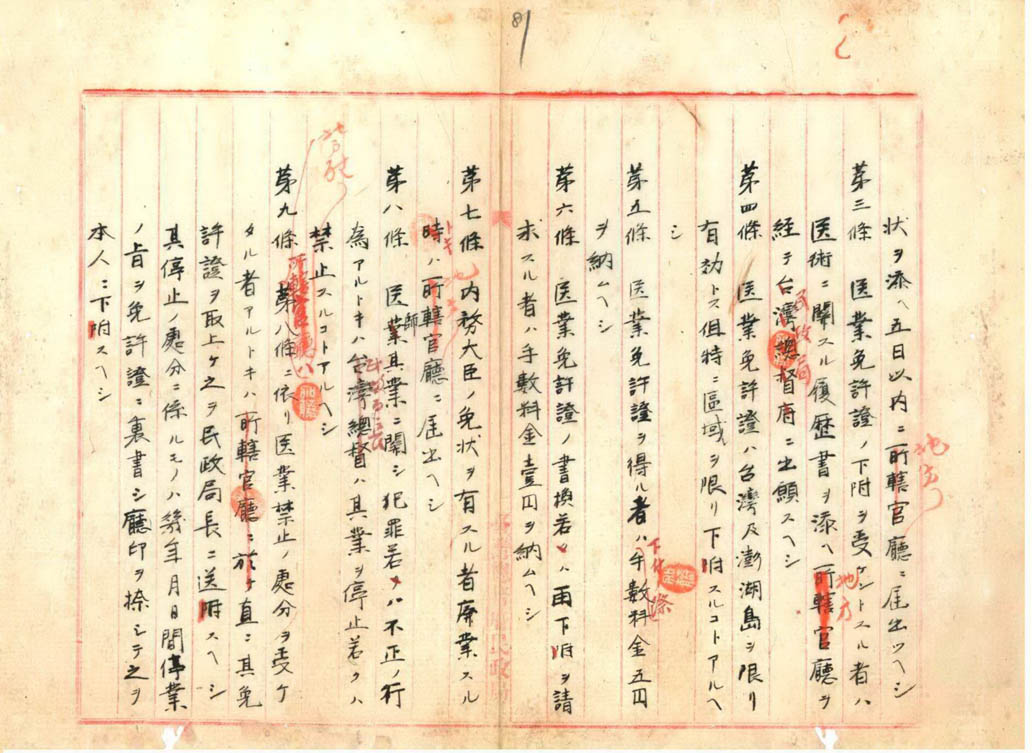 81
状ヲ添ヘ五日以内ニ所轄官廳ニ届出ツヘシ
地方
第三條 医業免許證ノ下附ヲ受ケントスル者ハ
医術ニ關スル履歴書ヲ添ヘ所轄官廳ヲ
地方
経テ台湾総督府ニ出願スヘシ
民政局
第四條 医業免許證ハ台湾及澎湖島ヲ限リ
有効トス但特ニ區域ヲ限リ下附スルコトアルヘ
シ
第五條 医業免許證ヲ得ル者ハ手数料金五円
ヲ納ムヘシ
第六條 医業免許證ノ書換若クハ再下附ヲ請
求スル者ハ手數料金壹円ヲ納ムヘシ
第七條 内務大臣ノ免状ヲ有スル者廃業スル
時ハ所轄官廳ニ届出ヘシ
トキ
地方
第八條 医師其業ニ關シ犯罪若クハ不正ノ行
為アルトキハ台湾總督ハ其業ヲ停止若クハ
禁止スルコトアルヘシ
第九條 第八條ニ依リ医業禁止ノ處分ヲ受ケ
所轄官廳ハ
タル者アルトキハ所轄官廳ニ於テ直ニ其免
許證ヲ取上ケ之ヲ民政局長ニ送附スヘシ
其停止ノ處分ニ係ルモノハ幾年月日間停業
ノ旨ヲ免許證ニ裏書シ廳印ヲ捺シテ之ヲ
本人ニ下附スヘシ